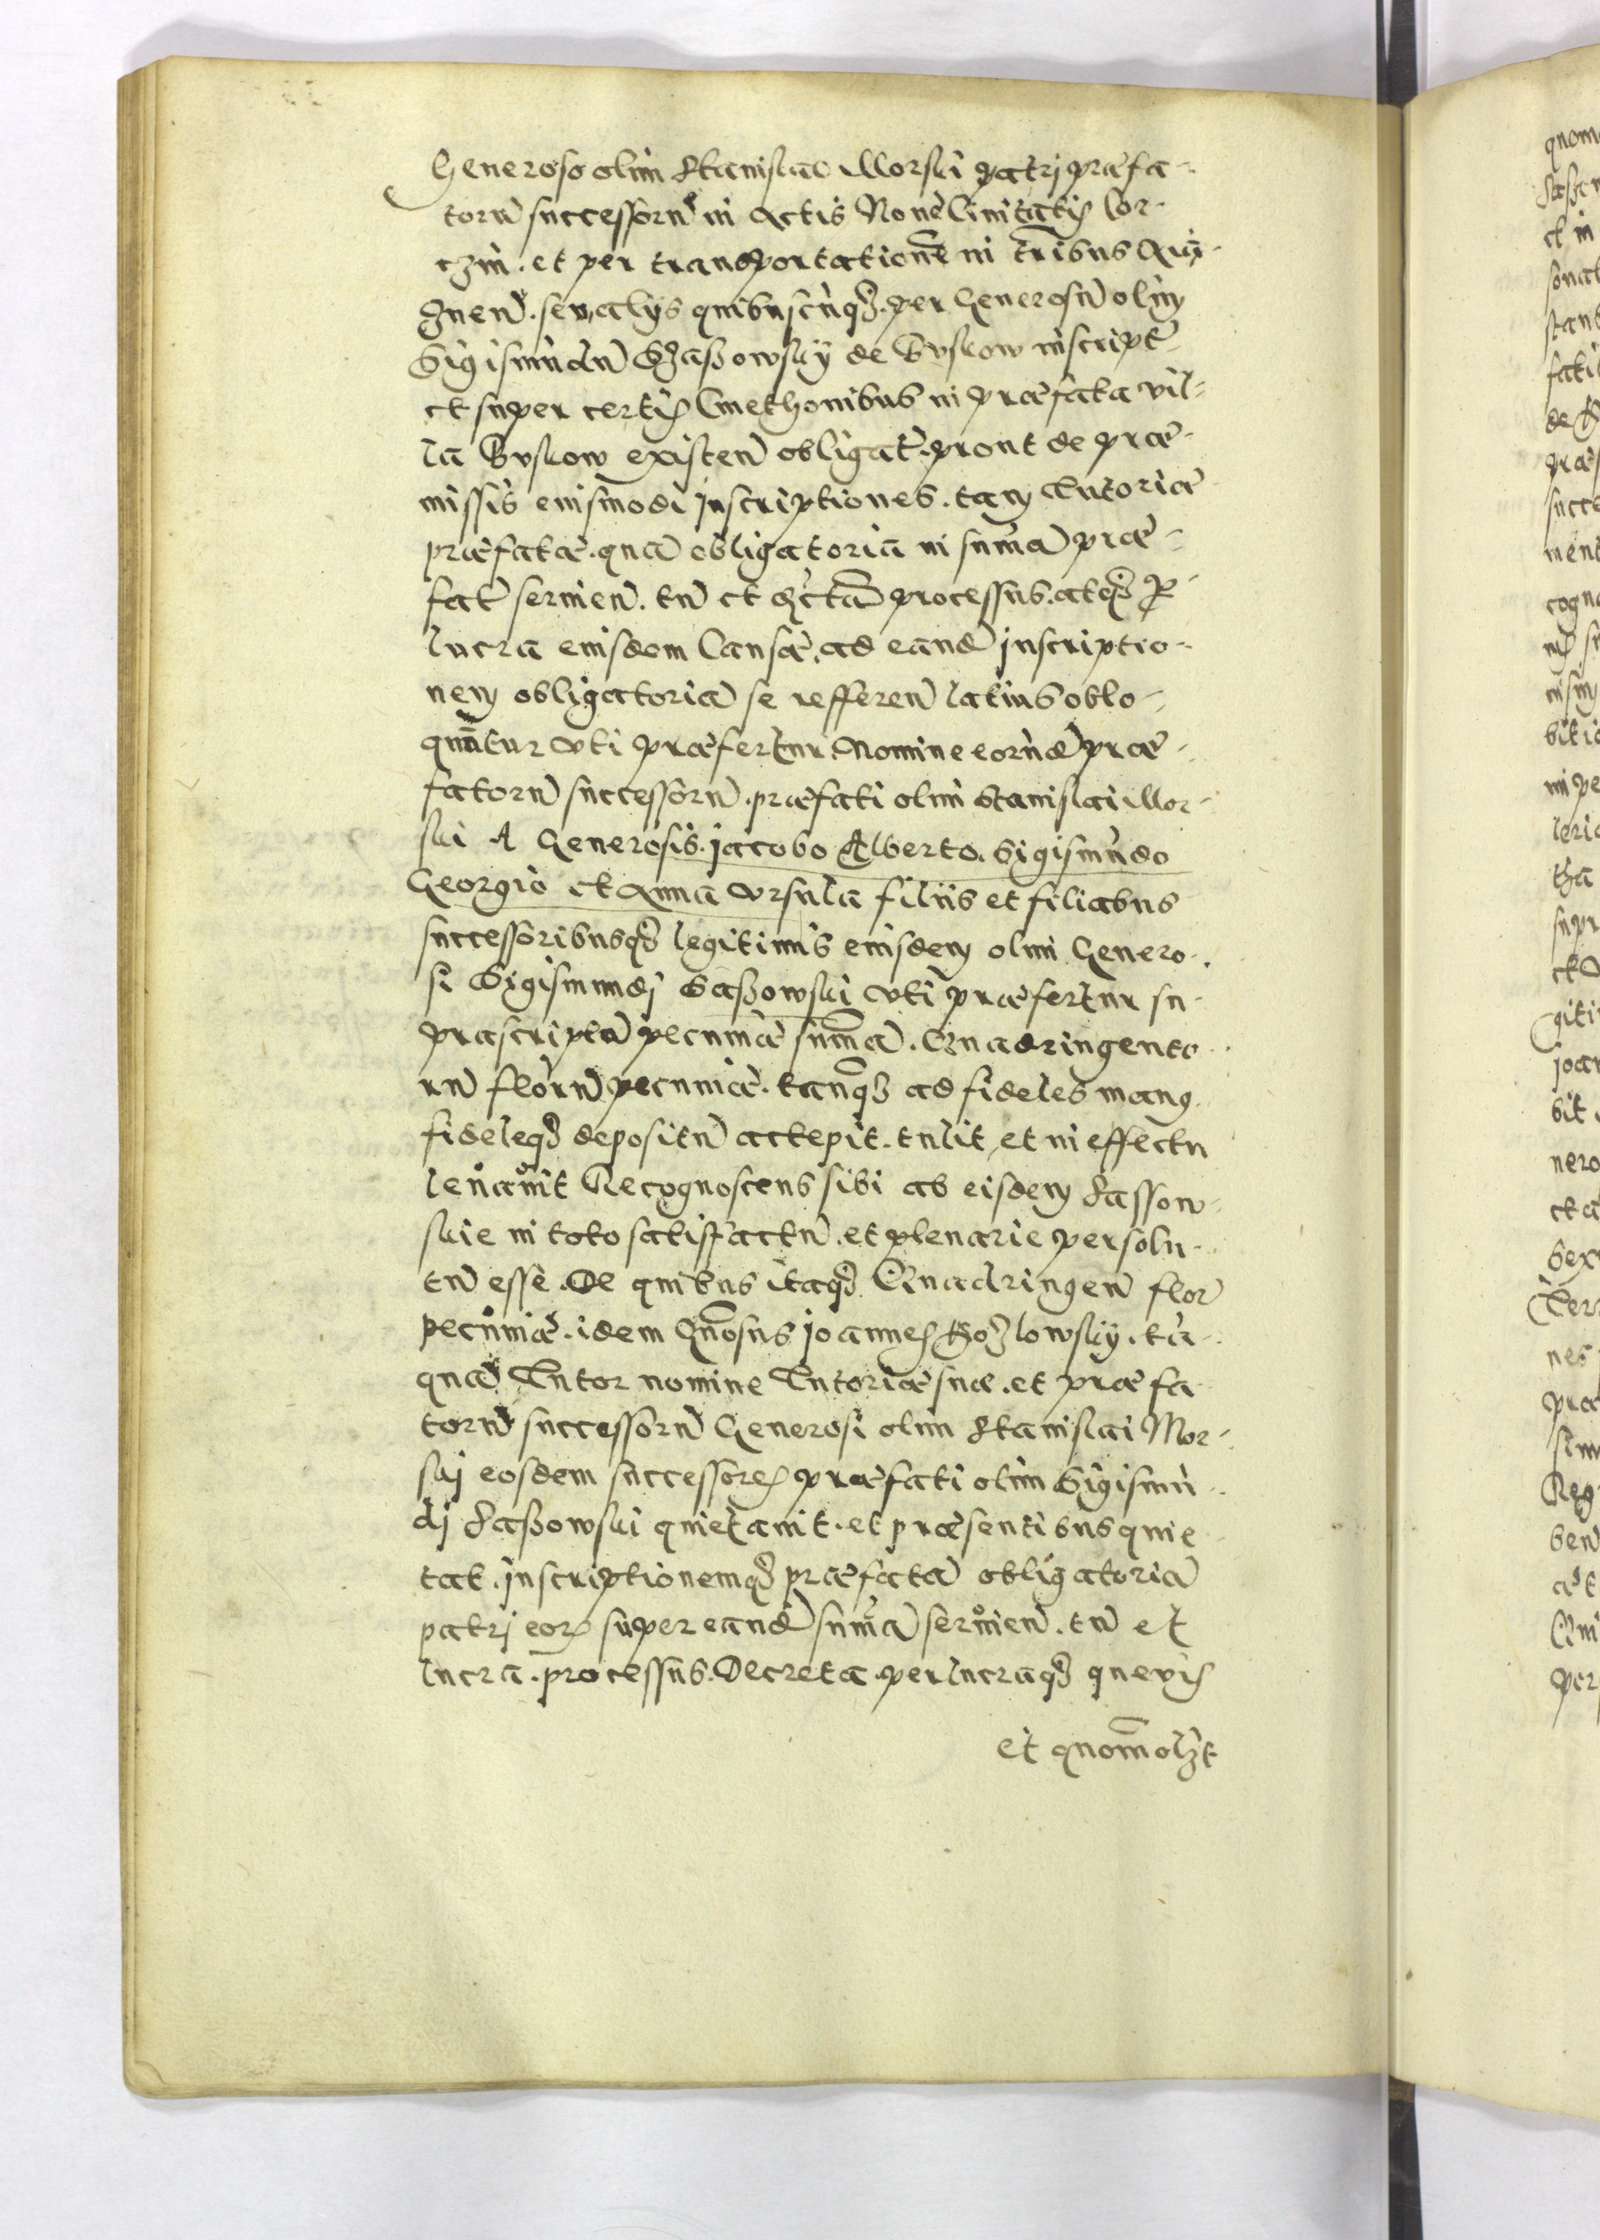 Generoso olim Stanislao Morski patri præfa-
torū successorū in Actis Novæ Civitatis Cor-
czin. et per transportationē in tribus
gnen̄. seu aliis quibuscūq₃ per Generosū olim
Sigismūdū Szaszowsky de Buskow inscript̄
et super certis Cmethonibus in præfata vil-
la Buskow existen̄ obligat̄. prout de præ-
missis eiusmodi Inscriptiones. tam Tutoriæ
præfatæ. quā obligatoria in sum̄a præ-
fat̄ servien̄. tū et processus. atq₃
lucra eiusdem Causæ, ad eand̄ inscriptio-
nem obligatoriā se refferen̄ latius oblo-
quūtur uti præfertur. Nomine eorūd̄ præ-
fatorū successorū. præfati olim Stanislai Mor-
ski A Generosis. Jacobo Alberto. Sigismūdo
Georgio et Anna Ursula filiis et filiabus
successoribusq₃ legitimis eiusdem olim Genero-
si Sigismundi Saszowski uti præfertur su-
prascriptā pecuniæ sum̄ā. Quadringento
rū florū pecuniæ. tanq̄ ad fideles manus
fideleq₃ depositū accepit. tulit, et in effectu
levavit Recognoscens sibi ab eisdem Sassow-
skie in toto satisfactū. et plenarie persolu-
tū esse. De quibus itaq₃ Quadringen̄ flor̄
pecuniæ. idem Gn̄osus Joannes Kozlowsky. tā
quā Tutor nomine Tutoriæ suæ. et præfa
torū successorū Generosi olim Stanislai Mor-
skj eosdem successores præfati olim Sigismū
dj Saszowski quietavit. et præsentibus quie
tat. inscriptionemq₃ præfatā obligatoriā
patri eor₃ super eand̄ sum̄ā servien̄. tū et
lucra. processus. Decreta. per lucraq₃ quevis
et quom̄olz̄t